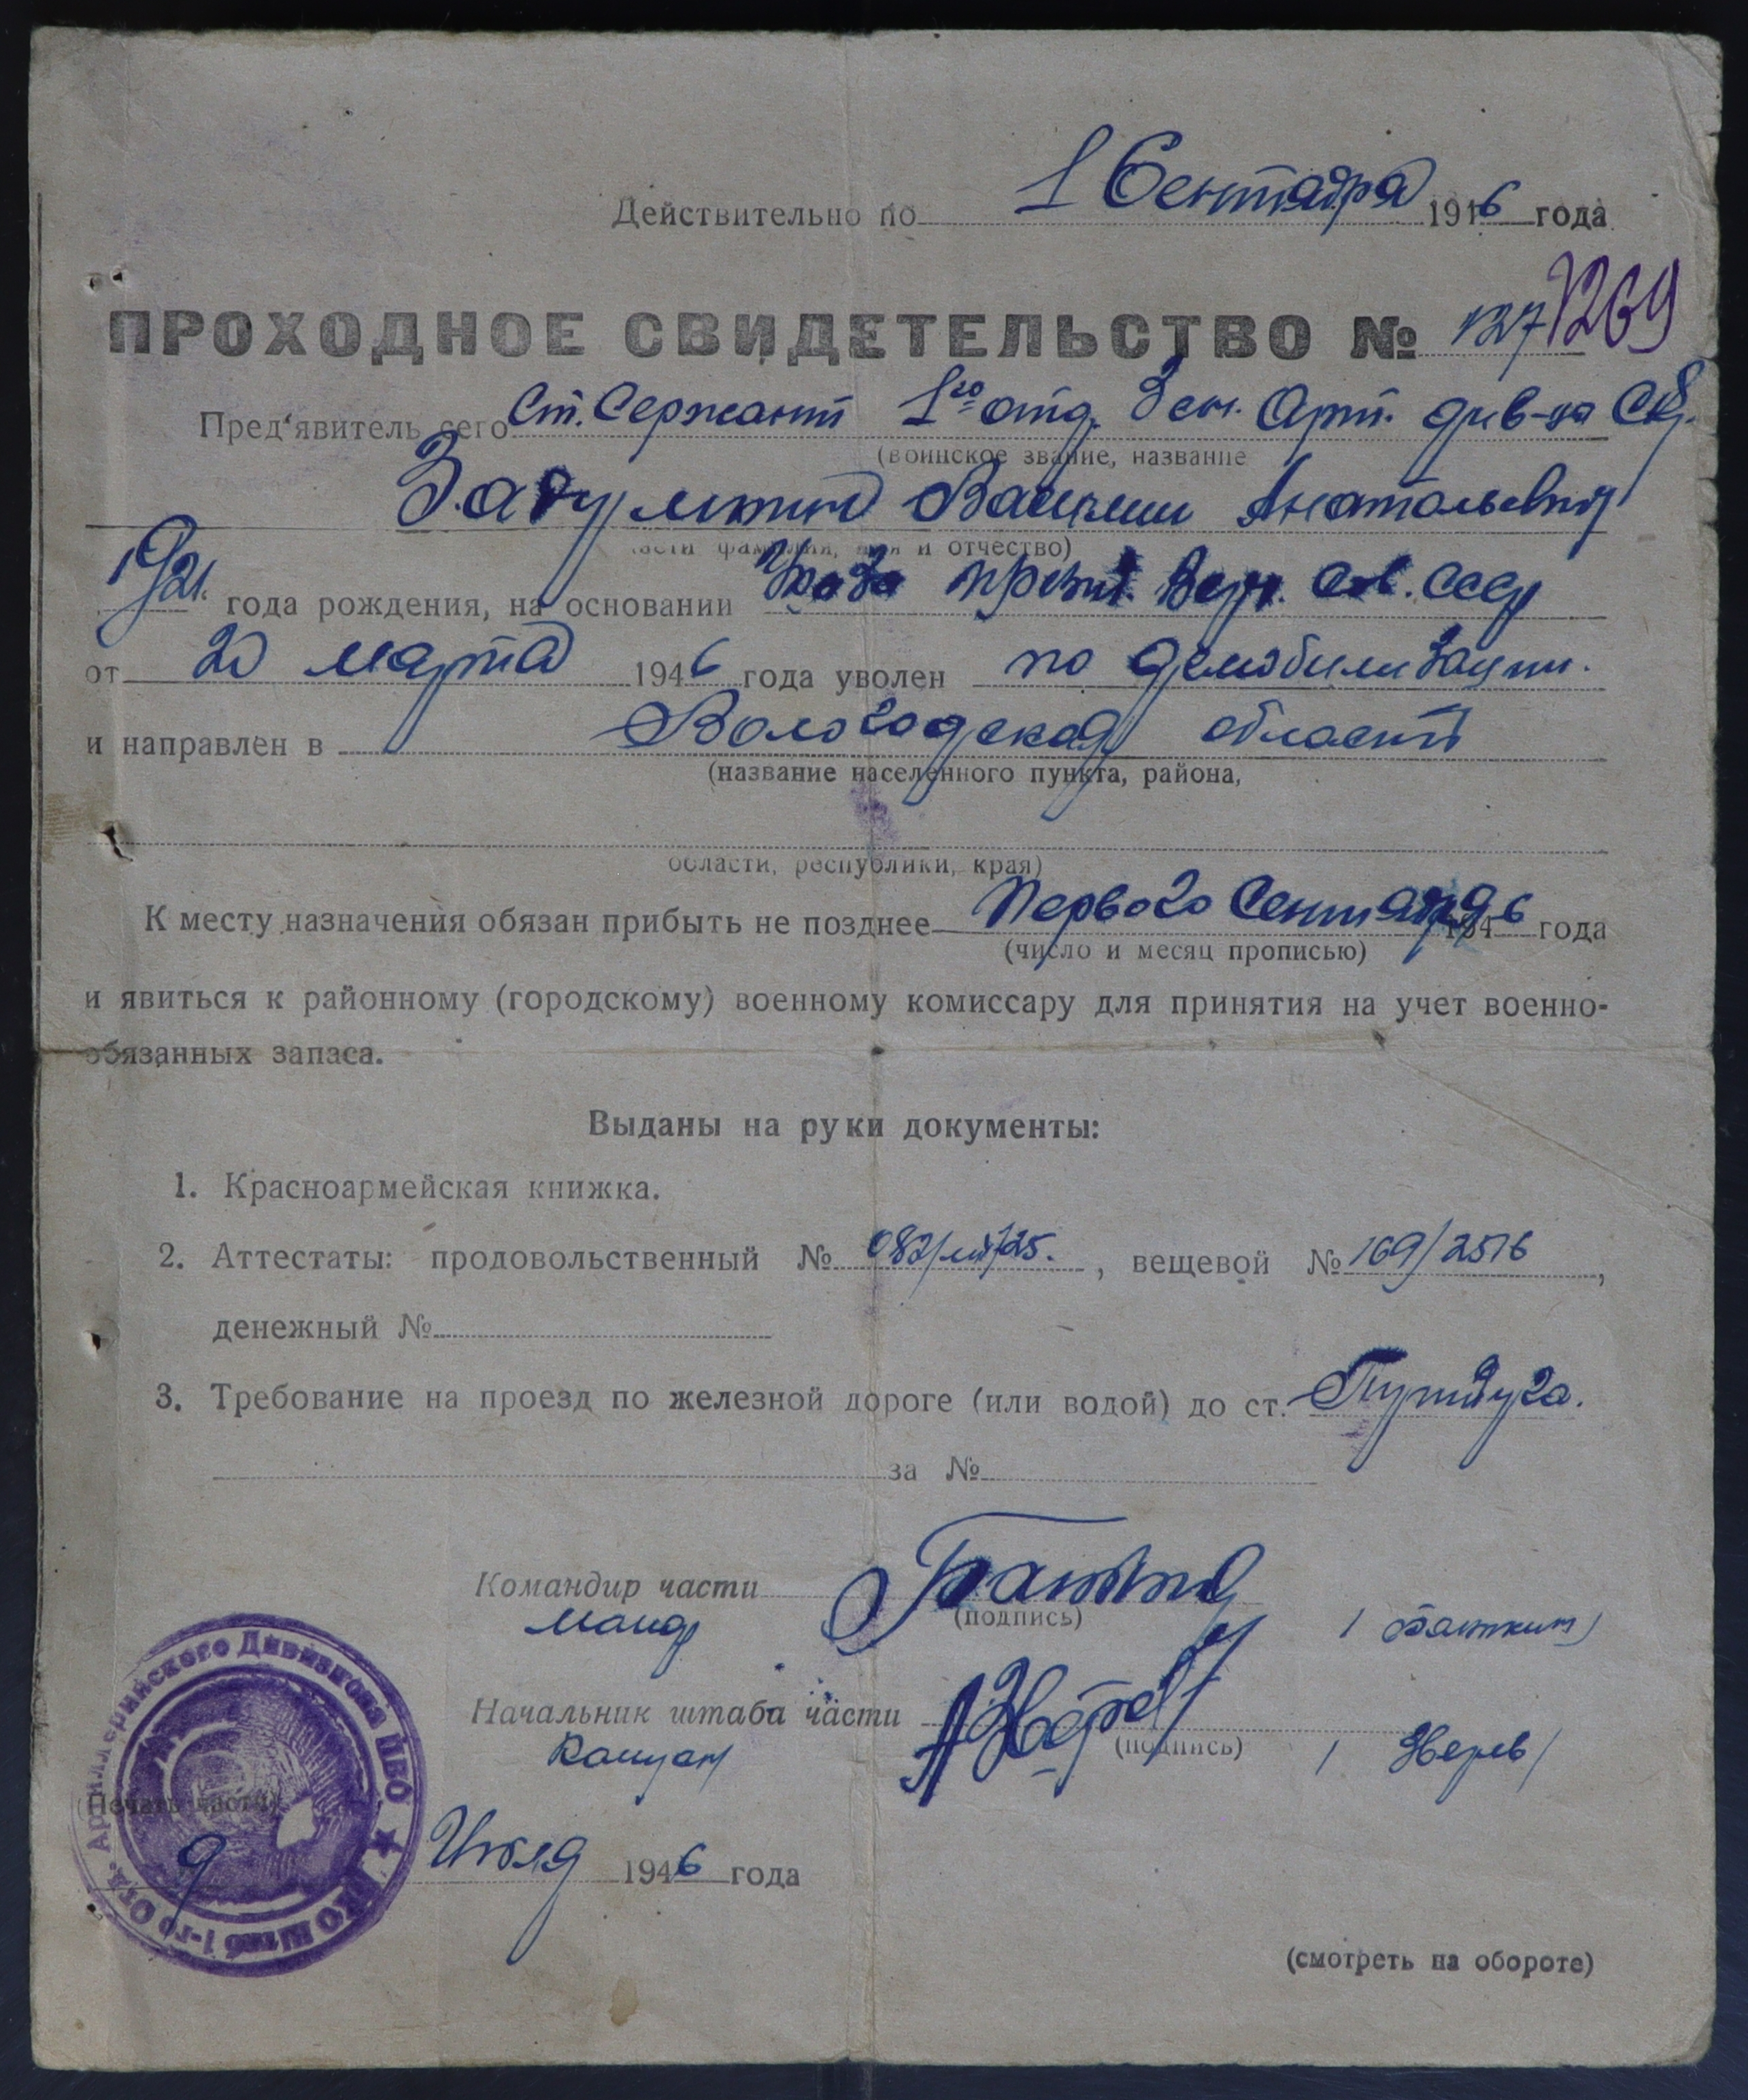 Действительно по 1 Сентября 1946 года
ПРОХОДНОЕ СВИДЕТЕЛЬСТВО № 127 1269
Пред‘явитель сего Ст. Сержант 1го отд. Зен. Арт. див-на
(воинское звание, название
Анатольевич
части фамилия, имя и отчество)
1921. года рождения, на основании Указа През. Верх. Сов. СССР
от 20 марта 1946 года уволен по демобилизации.
и направлен в Вологодская область
(название населенного пункта, района,
области, республики, края)
К месту назначения обязан прибыть не позднее Первого Сентября 1946 года
(число и месяц прописью)
и явиться к районному (городскому) военному комиссару для принятия на учет военно-
обязанных запаса.
Выданы на руки документы:
1. Красноармейская книжка.
2. Аттестаты: продовольственный № , вещевой № 169/2516 ,
денежный №
3. Требование на проезд по железной дороге (или водой) до ст.
за №
Командир части
(подпись)
Майор
Начальник штаба части
(подпись)
Капитан / Зверев /
(Печать части)
9 Июля 1946 года
Штаб 1-го Отд. Артиллерийского Дивизиона ПВО ★ НКО
(смотреть на обороте)